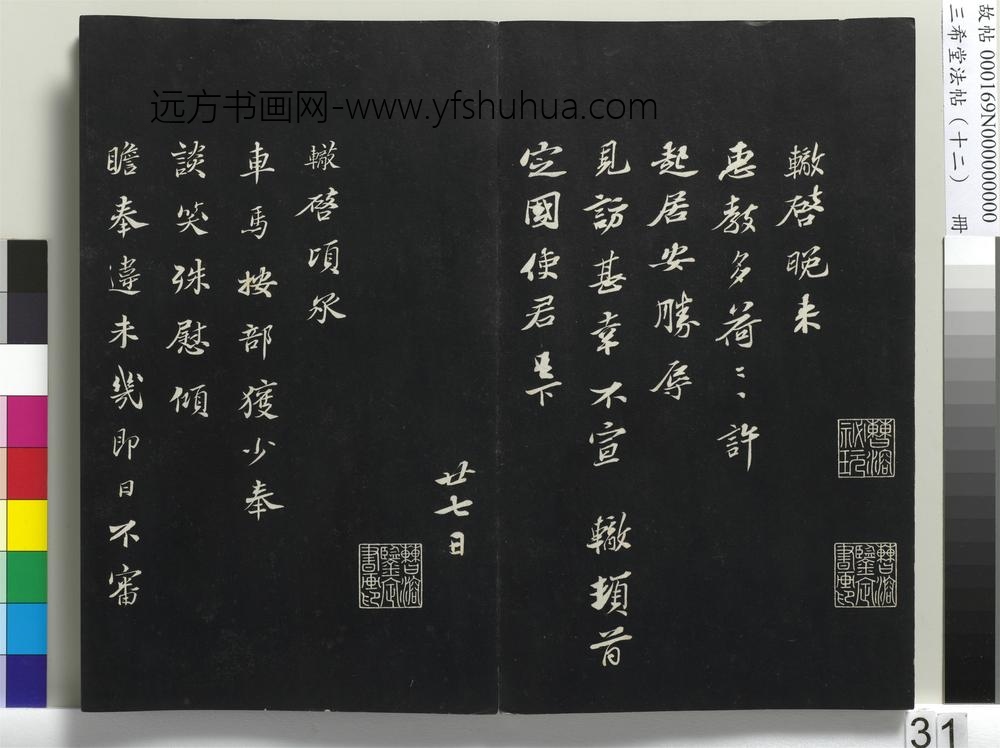 轍啓晚来
惠教多荷〻許
起居安勝辱
見訪甚幸不宣 轍頓首
定國使君足下
廿七日
轍啓頃承
車馬按部獲少奉
談笑殊慰傾
瞻奉違未幾即日不審
曹溶秘玩
曹溶鑒定書畫印
曹溶鑒定書畫印
远方书画网-www.yfshuhua.com
故帖 000169N000000000
三希堂法帖(十二) 冊
31